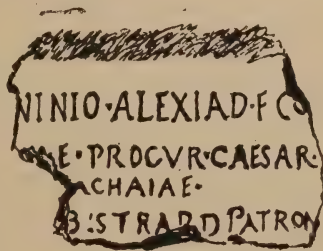 NINIO·ALEXIAD·F CO
E·PROCVR·CAESAR·
ACHAIAE·
B:STRABD PATRON